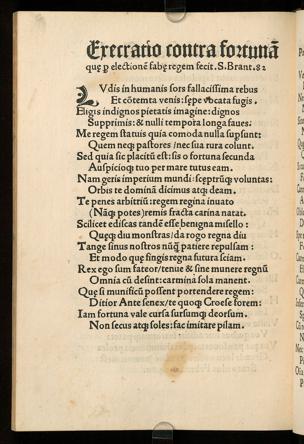 Execratio contra fortunā
quę ꝑ electionē fabę regem fecit. S. Brant. 82
LVdis in humanis sors fallacissima rebus
Et cōtemta venis: sepe vocata fugis.
Eligis indignos pietatis imagine: dignos
Supprimis: & nulli tempora longa faues:
Me regem statuis quia comoda nulla supsunt:
Quem neqȝ pastores / nec sua rura colunt.
Sed quia sic placitū est: sis o fortuna secunda
Auspicioqȝ tuo per mare tutus eam.
Nam geris imperium mundi: sceptrūqȝ voluntas:
Orbis te dominā dicimus atqȝ deam.
Te penes arbitriū: regem regina inuato
(Nāqȝ potes) remis fracta carina natat.
Scilicet ediscas tandē esse benigna misello:
Quęqȝ diu monstras / da rogo regna diu
Tange sinus nostros nūqȝ patiere repulsam:
Et modo que fingis regna futura sciam.
Rex ego sum fateor / tenue & sine munere regnū
Omnia cū desint: carminā sola manent.
Quę si munifico possent portendere regem:
Ditior Ante senex / te quoqȝ Croese forem:
Iam fortuna vale cursu sursumqȝ deorsum.
Non secus atqȝ soles: fac imitare pilam.